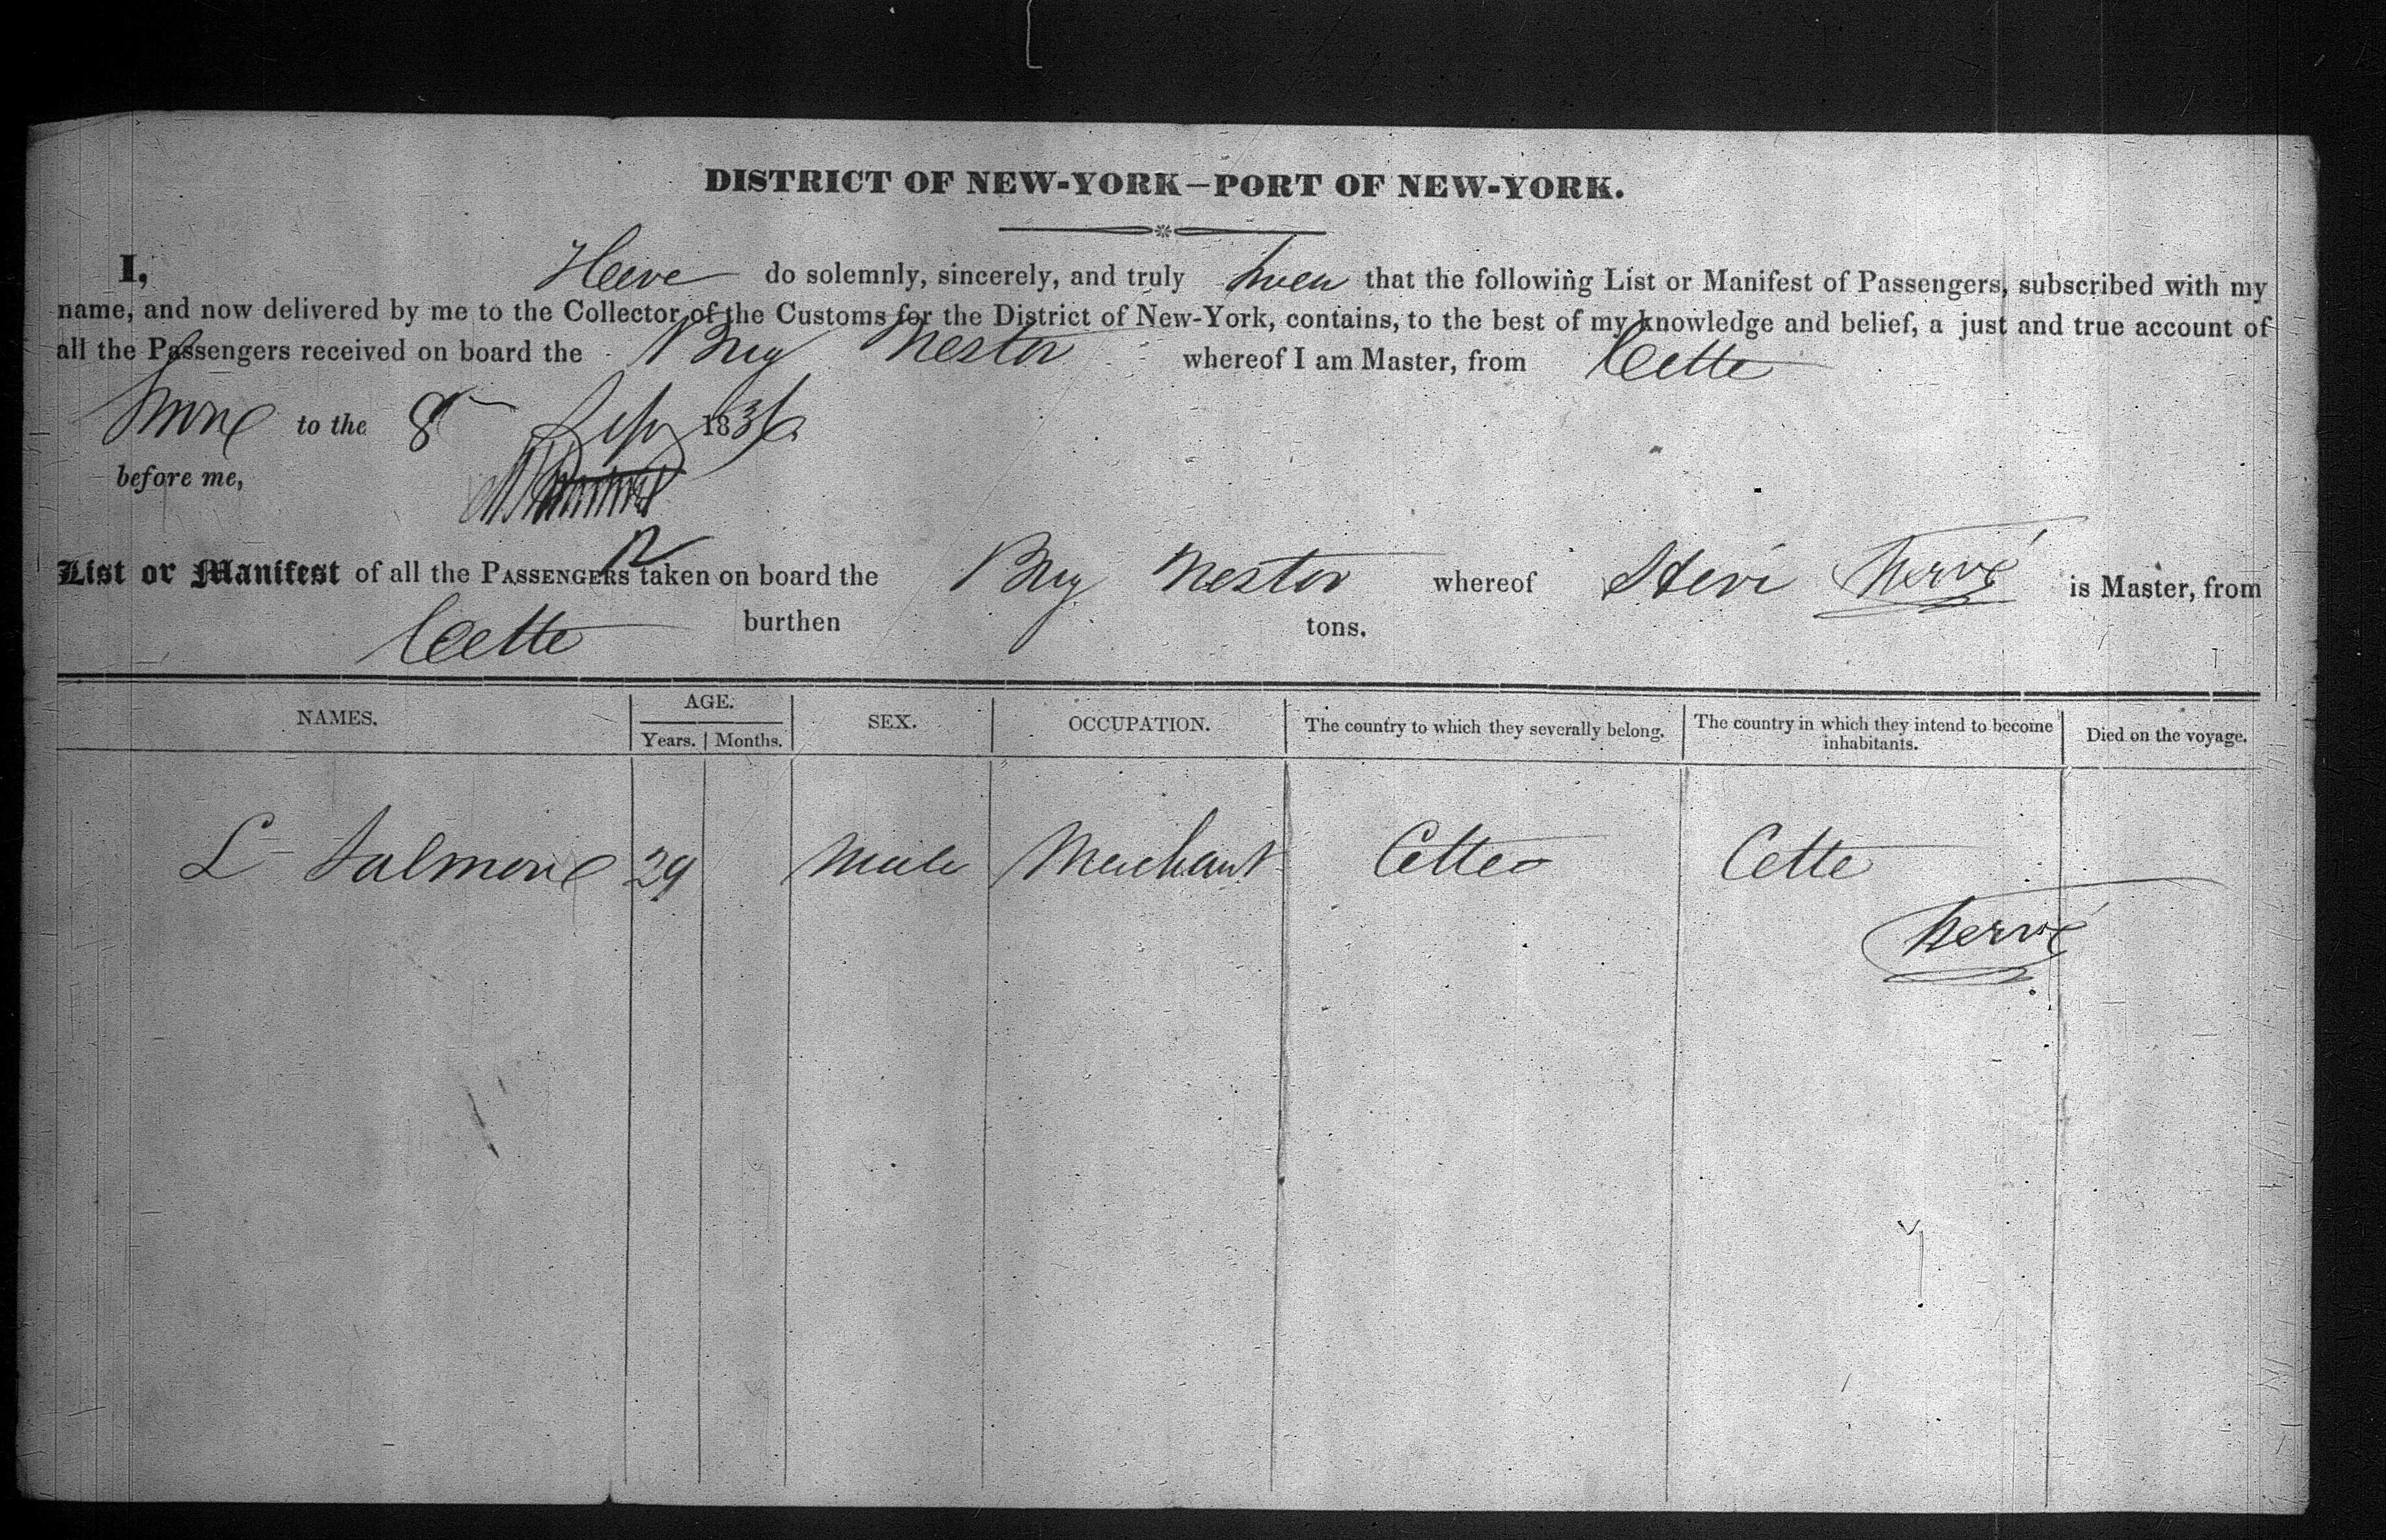 DISTRICT OF NEW-YORK—PORT OF NEW-YORK.
I, Heve do solemnly, sincerely, and truly swea that the following List or Manifest of Passengers, subscribed with my
name, and now delivered by me to the Collector of the Customs for the District of New-York, contains, to the best of my knowledge and belief, a just and true account of
all the Passengers received on board the Brig Nestor whereof I am Master, from Cette
Sworn to the 8 1836
before me,
List or Manifest of all the PASSENGERS taken on board the Brig Nestor whereof Hervé is Master, from
Cette burthen tons.
NAMES. AGE. Years. Months. SEX. OCCUPATION. The country to which they severally belong. The country in which they intend to become inhabitants. Died on the voyage.
L Salmone 29 Male Merchant Cette Cette
Hervé